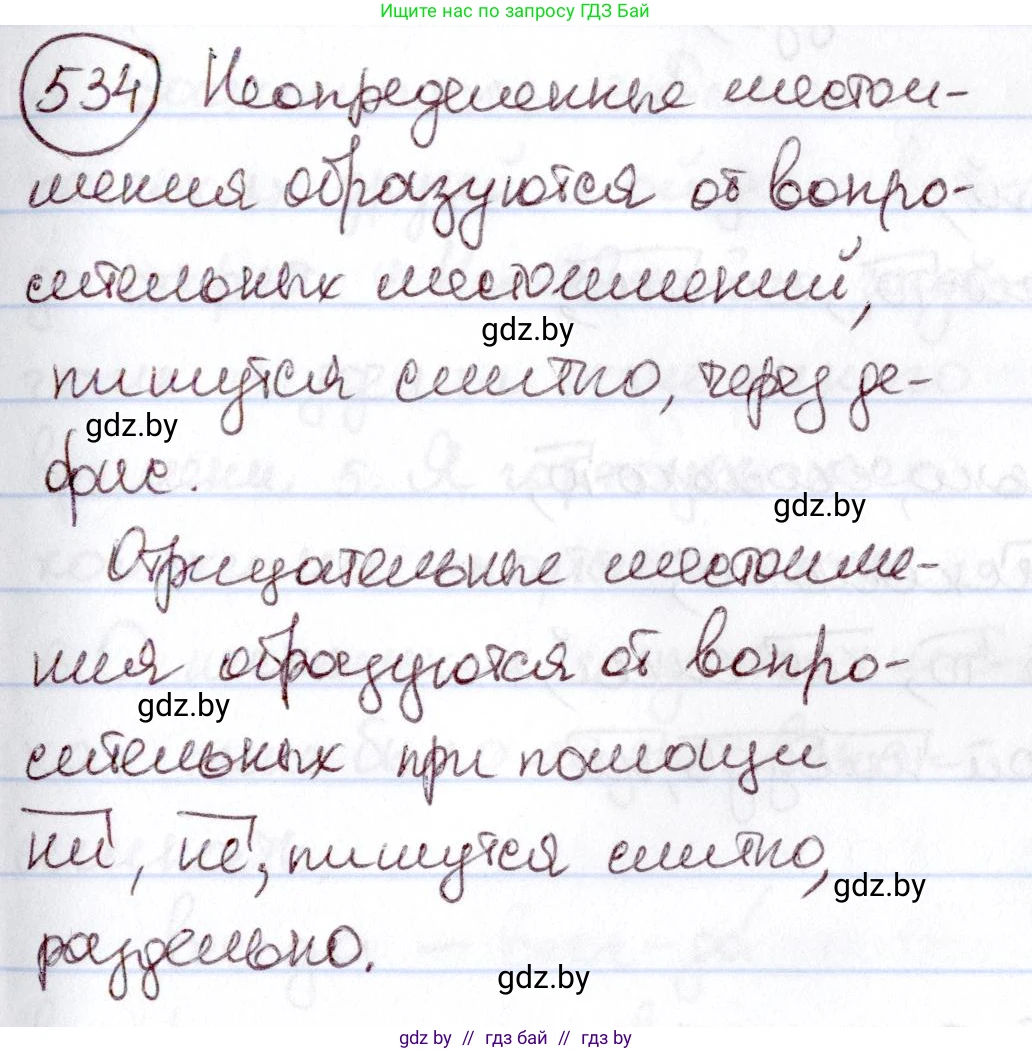 Ищите нас по запросу ГДЗ Бай
534 Неопределенные местои-
мения образуются от вопро-
сительных местоимений,
gdz.by
пишутся слитно, через де-
gdz.by
фис.
gdz.by
Отрицательные местоиме-
ния образуются от вопро-
gdz.by
сительных при помощи
ни, не; пишутся слитно,
gdz.by
раздельно.
gdz.by
gdz.by // гдз бай // гдз by